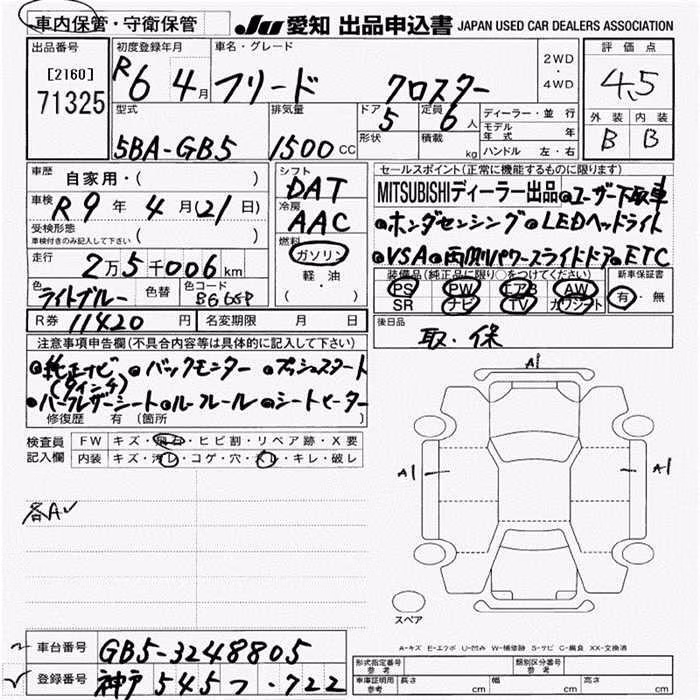 車内保管・守衛保管 JU 愛知 出品申込書 JAPAN USED CAR DEALERS ASSOCIATION
出品番号 初度登録年月 車名・グレード 2WD・4WD 評価点
[2160] 71325 R6 4月 フリード クロスター 4.5
型式 排気量 ドア 5 定員 6人 ディーラー・並行 外装 内装
5BA-GB5 1500cc 形状 積載 kg モデル年式 年 B B
ハンドル 左・右
車歴 自家用・( ) シフト DAT セールスポイント(正常に機能するものに限ります)
車検 R9年4月(21日) 冷房 AAC MITSUBISHIディーラー出品 ●ユーザー下取車
受検形態 車検付きのみ記入して下さい ( ) 燃料 ガソリン ●ホンダセンシング ●LEDヘッドライト
走行 2万5千006km 軽・油 ●VSA ●両側パワースライドドア ●ETC
色 ライトブルー 色替 色コード ( ) 装備品(純正品に限り○をつけてください) 新車保証書
PS PW エアB AW 有・無
SR ナビ TV カワシート
R券 11420円 名変期限 月 日 後日品
取.保
注意事項申告欄(不具合内容等は具体的に記入して下さい)
●純正ナビ(9インチ) ●バックモンター ●プッシュスタート
●パークレザーシート ●ルーフレール ●シートヒーター
修復歴 有 〔箇所 〕
検査員記入欄 FW キズ・飛石・ヒビ割・リペア跡・X要
内装 キズ・汚レ・コゲ・穴・スレ・キレ・破レ
A1
A1 A1
各A✓
スペア
A-キズ E-エクボ U-凹み W-補修跡 S-サビ C-腐食 XX-交換済
車台番号 GB5-3248805
登録番号 神戸 545 つ・722
形式指定番号 参考 類別区分番号 参考
車庫証明用 参考 長さ cm 幅 cm 高さ cm